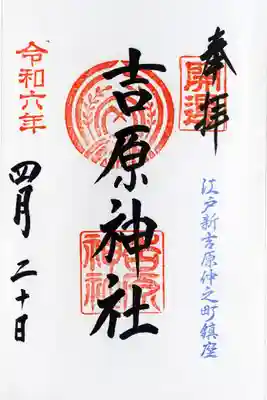 奉拝
開運
江戸新吉原仲之町鎮座
吉原神社
吉原神社
令和六年
四月二十日